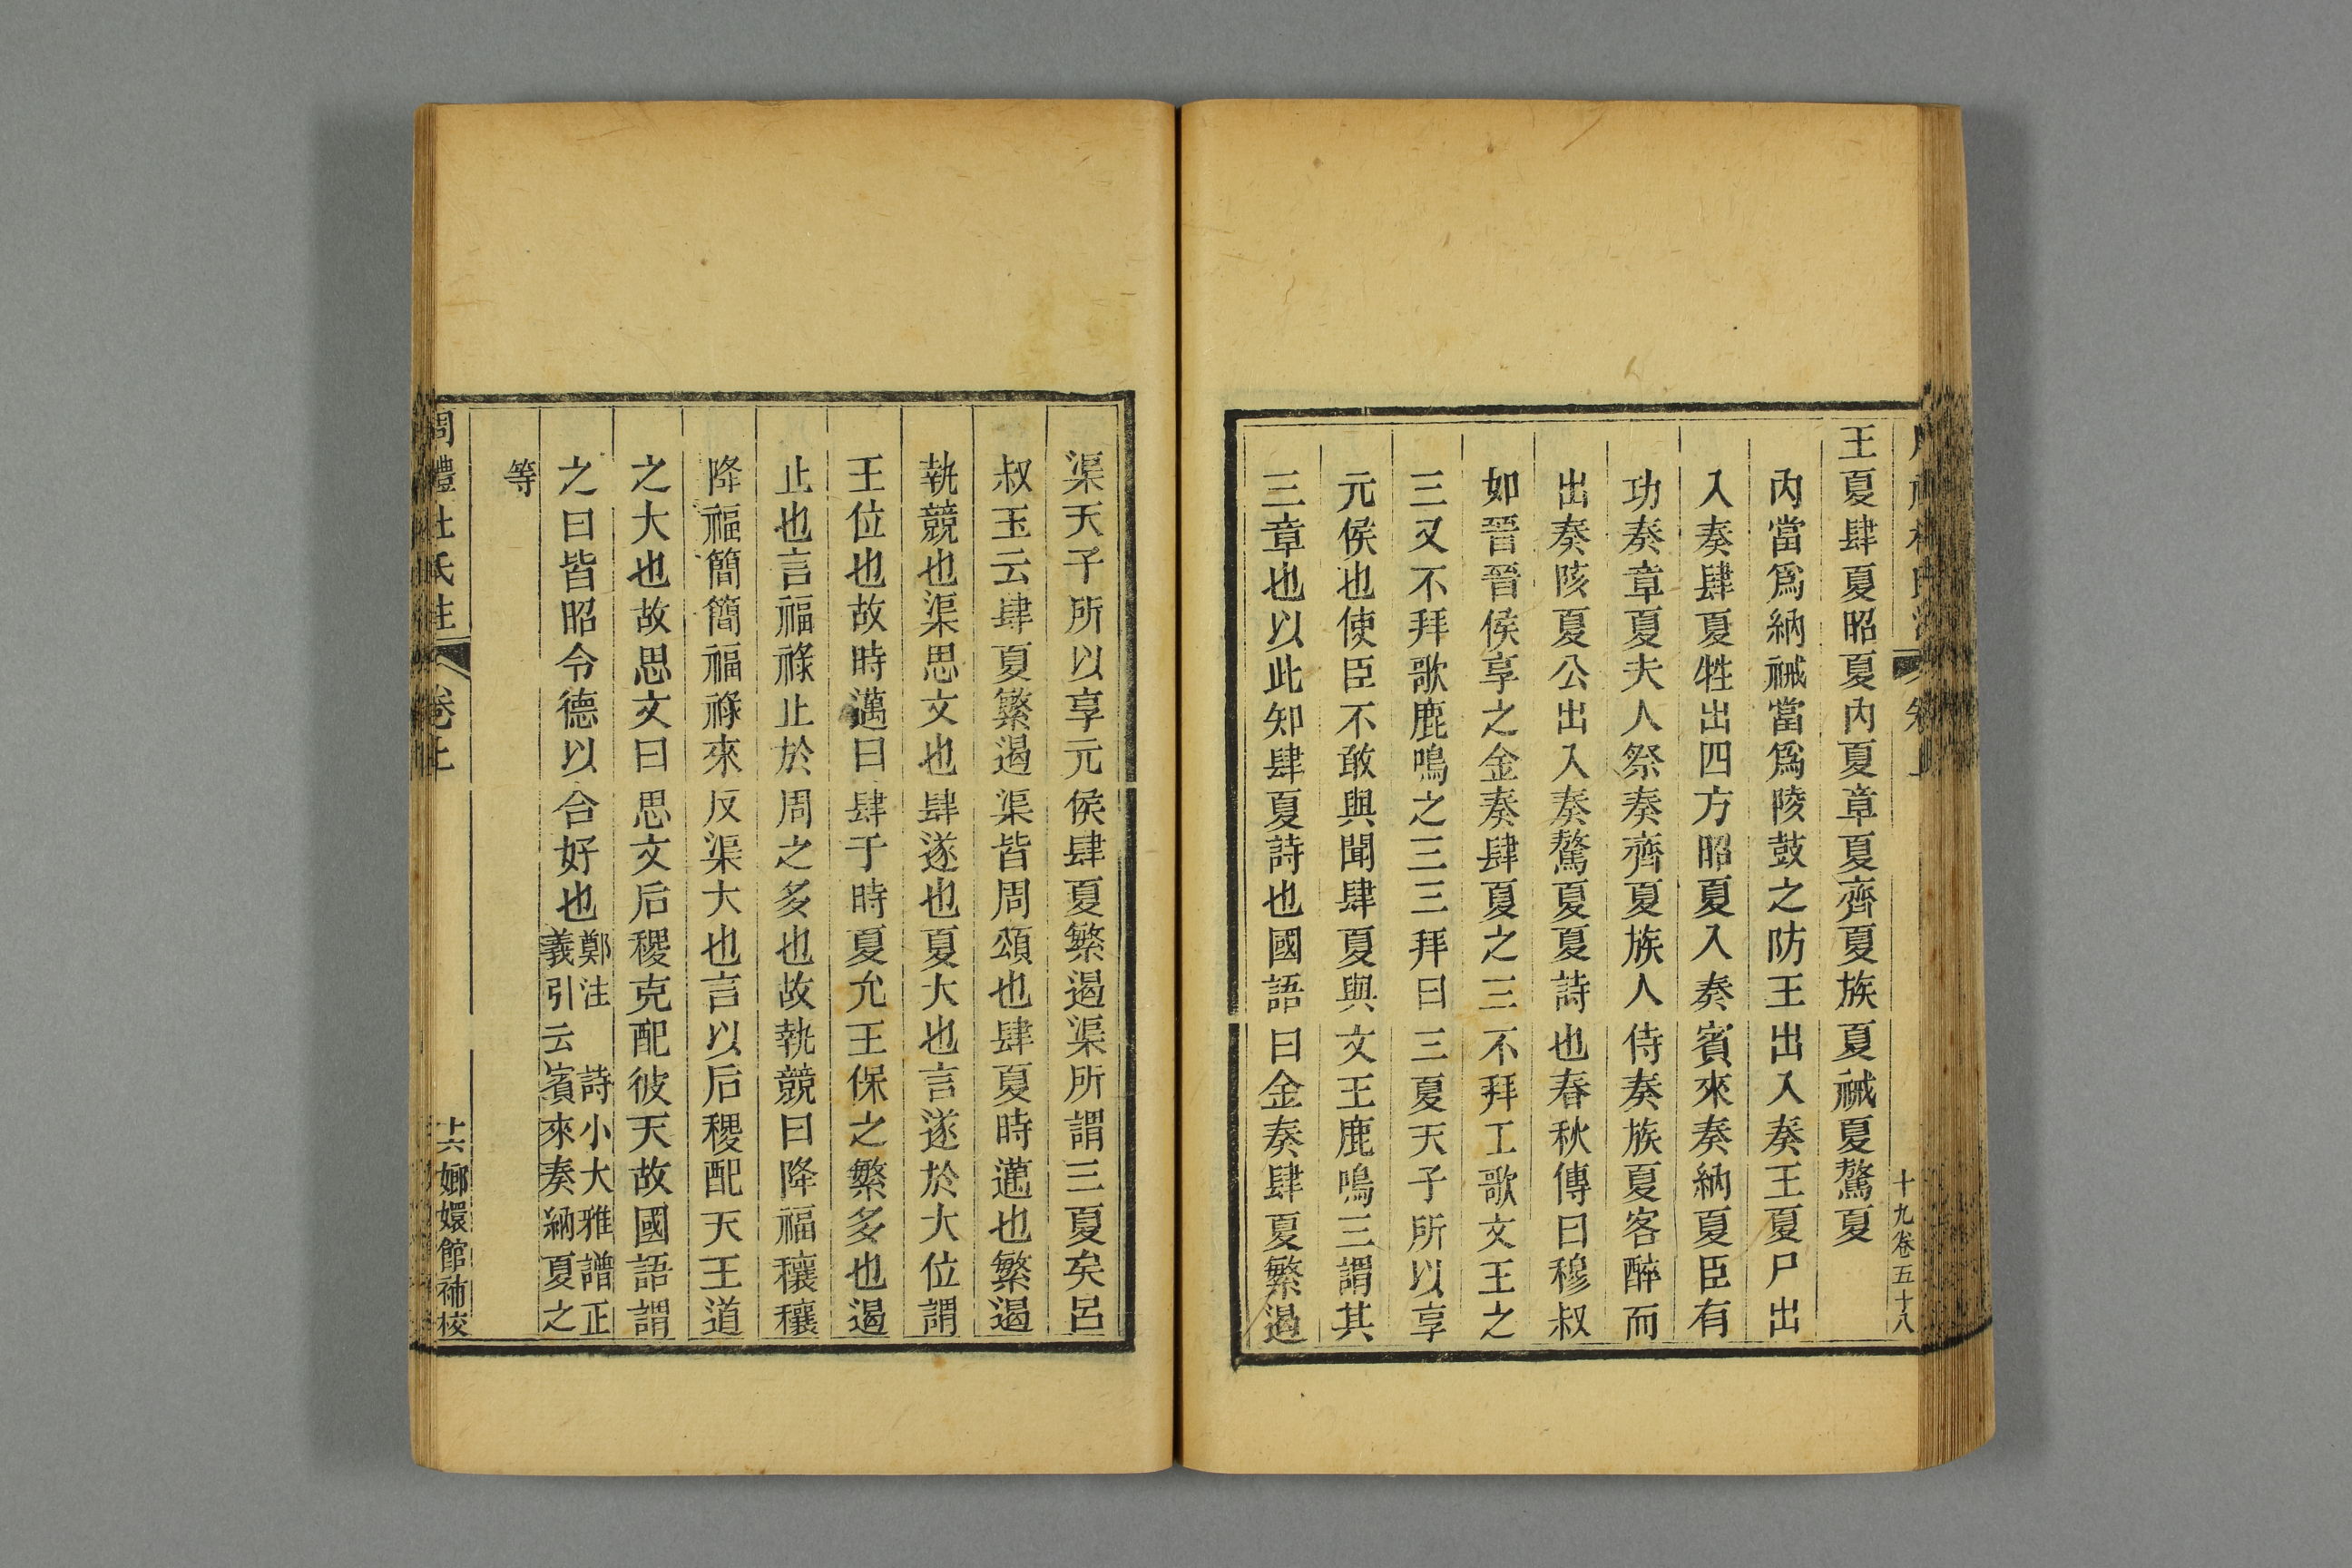 十九卷五十八
王夏肆夏昭夏內夏章夏齊夏族夏祴夏驁夏
內當爲納祴當爲陵鼓之防王出入奏王夏尸出
入奏肆夏牲出四方昭夏入奏賓來奏納夏臣有
功奏章夏夫人祭奏齊夏族人侍奏族夏客醉而
出奏陔夏公出入奏驁夏夏詩也春秋傳曰穆叔
如晉晉侯享之金奏肆夏之三不拜工歌文王之
三又不拜歌鹿鳴之三三拜曰三夏天子所以享
元侯也使臣不敢與聞肆夏與文王鹿鳴三謂其
三章也以此知肆夏詩也國語曰金奏肆夏繁遏
渠天子所以享元侯肆夏繁遏渠所謂三夏矣呂
叔玉云肆夏繁遏渠皆周頌也肆夏時邁也繁遏
執競也渠思文也肆遂也夏大也言遂於大位謂
王位也故時邁曰肆于時夏允王保之繁多也遏
止也言福祿止於周之多也故執競曰降福穰穰
降福簡簡福祿來反渠大也言以后稷配天王道
之大也故思文曰思文后稷克配彼天故國語謂
之曰皆昭令德以合好也鄭注 詩小大雅譜正
義引云賓來奏納夏之
等
周禮杜氏注 卷上 十六 嫏嬛館補校